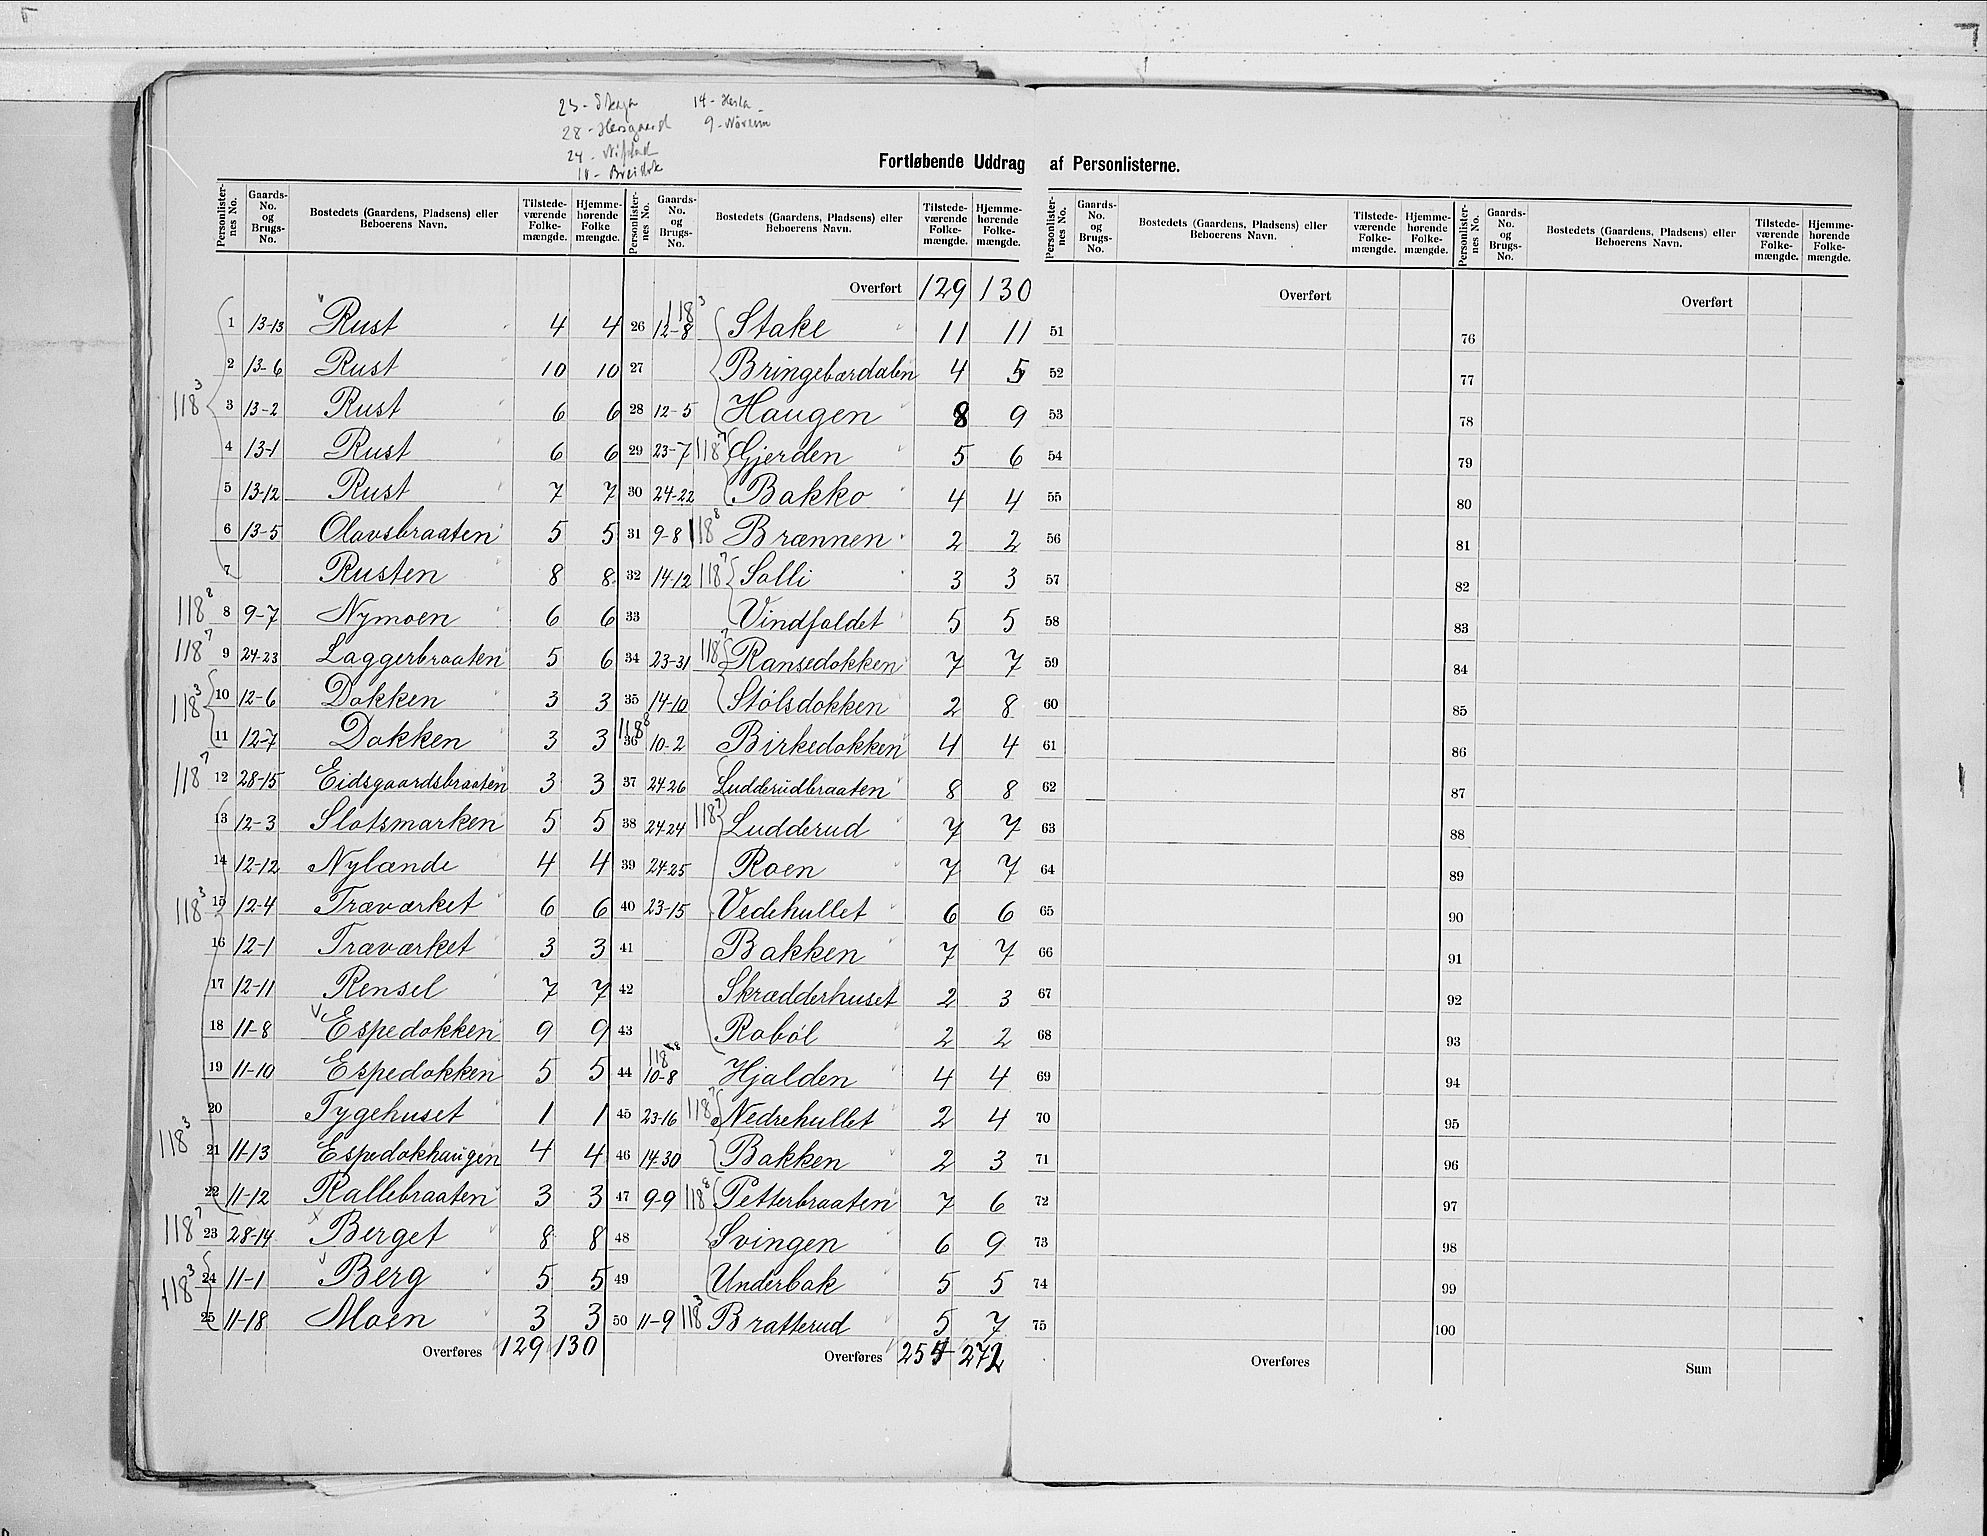 14 - Hesla
9 - Nörsem
28 - Hersgaard
10 - Breidok
Fortløbende Uddrag af Personlisterne.
Personlisternes No. Gaards-No. og Brugs-No. Bostedets (Gaardens, Pladsens) eller Beboerens Navn. Tilstedeværende Folkemængde. Hjemmehørende Folkemængde.
118³
1 13-13 Rust 4 4
2 13-6 Rust 10 10
3 13-2 Rust 6 6
4 13-1 Rust 6 6
5 13-12 Rust 7 7
6 13-5 Olavsbraaten 5 5
7 Rusten 8 8
118⁸ 8 9-7 Nymoen 6 6
118⁷ 9 24-23 Laggerbraaten 5 6
118³ 10 12-6 Dokken 3 3
11 12-7 Dokken 3 3
118⁷ 12 28-15 Eidsgaardsbraaten 3 3
13 12-3 Slotsmarken 5 5
14 12-12 Nylænde 4 4
118³ 15 12-4 Træværket 6 6
16 12-1 Træværket 3 3
17 12-11 Rensel 7 7
18 11-8 Espedokken 9 9
19 11-10 Espedokken 5 5
20 Tygehuset 1 1
118³ 21 11-13 Espedokhaugen 4 4
22 11-12 Kallebraaten 3 3
118⁷ 23 28-14 Berget 8 8
118³ 24 11-1 Berg 5 5
25 11-18 Moen 3 3
Overføres 129 130
Personlisternes No. Gaards-No. og Brugs-No. Bostedets (Gaardens, Pladsens) eller Beboerens Navn. Tilstedeværende Folkemængde. Hjemmehørende Folkemængde.
Overført 129 130
26 12-8 118³ Stake 11 11
27 Bringebærdalen 4 5
28 12-5 Haugen 8 9
29 23-7 118⁷ Gjerden 5 6
30 24-22 Bakko 4 4
31 9-8 118⁸ Brænnen 2 2
32 14-12 118⁷ Solli 3 3
33 Vindfaldet 5 5
34 23-31 118⁷ Ransedokken 7 7
35 14-10 Stölsdokken 2 8
36 118⁸ 10-2 Birkedokken 4 4
37 24-26 Ludderudbraaten 8 8
38 24-24 118⁷ Ludderud 7 7
39 24-25 Roen 7 7
40 23-15 Vedehullet 6 6
41 Bakken 7 7
42 Skrædderhuset 2 3
43 Roböl 2 2
44 118⁸ 10-8 Hjalden 4 4
45 23-16 118⁷ Nedrehullet 2 4
46 14-30 Bakken 2 3
47 9-9 118⁸ Petterbraaten 7 6
48 Svingen 6 9
49 Underbak 5 5
50 11-9 118³ Bratterud 5 7
Overføres 254 272
Personlisternes No. Gaards-No. og Brugs-No. Bostedets (Gaardens, Pladsens) eller Beboerens Navn. Tilstedeværende Folkemængde. Hjemmehørende Folkemængde.
Overført
51
52
53
54
55
56
57
58
59
60
61
62
63
64
65
66
67
68
69
70
71
72
73
74
75
Overføres
Personlisternes No. Gaards-No. og Brugs-No. Bostedets (Gaardens, Pladsens) eller Beboerens Navn. Tilstedeværende Folkemængde. Hjemmehørende Folkemængde.
Overført
76
77
78
79
80
81
82
83
84
85
86
87
88
89
90
91
92
93
94
95
96
97
98
99
100
Sum